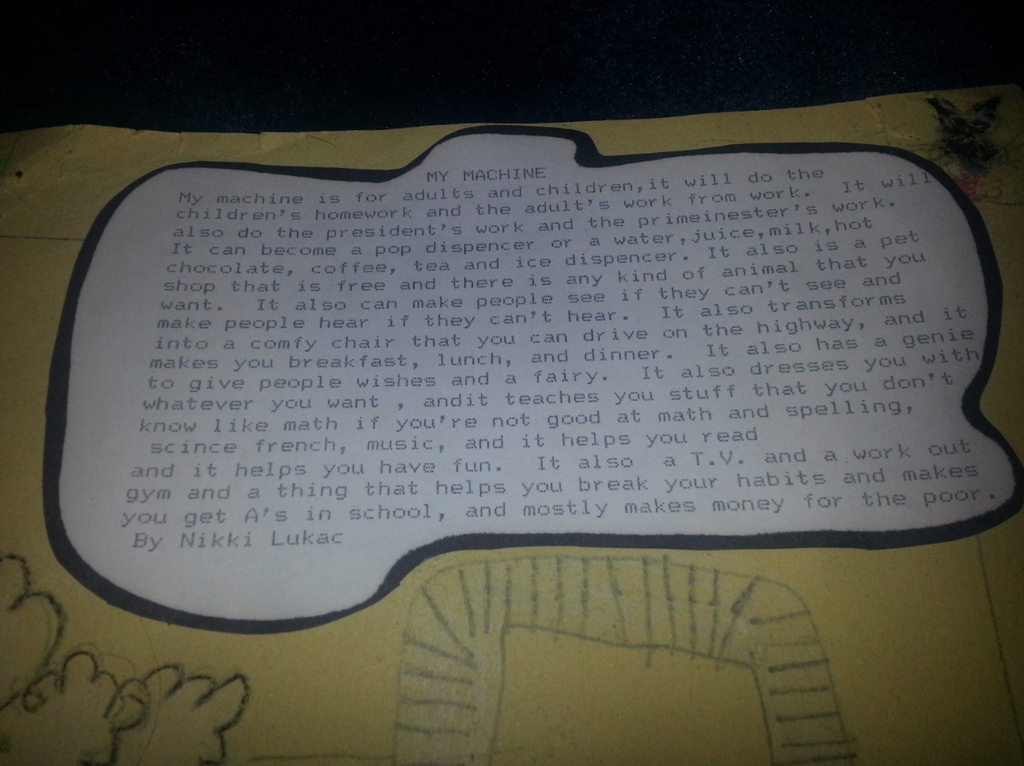 MY MACHINE
My machine is for adults and children,it will do the
children's homework and the adult's work from work.  It will
also do the president's work and the primeinester's work.
It can become a pop dispencer or a water,juice,milk,hot
chocolate, coffee, tea and ice dispencer. It also is a pet
shop that is free and there is any kind of animal that you
want.  It also can make people see if they can't see and
make people hear if they can't hear.  It also transforms
into a comfy chair that you can drive on the highway, and it
makes you breakfast, lunch, and dinner.  It also has a genie
to give people wishes and a fairy.  It also dresses you with
whatever you want , andit teaches you stuff that you don't
know like math if you're not good at math and spelling,
scince french, music, and it helps you read
and it helps you have fun.  It also  a T.V. and a work out
gym and a thing that helps you break your habits and makes
you get A's in school, and mostly makes money for the poor.
By Nikki Lukac